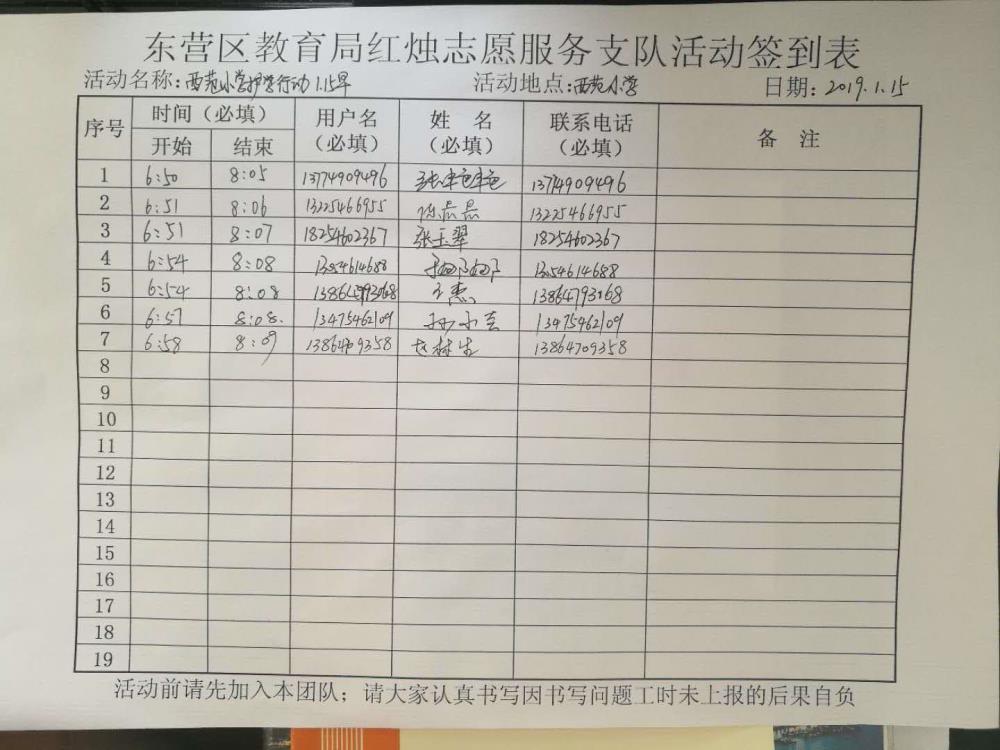 东营区教育局红烛志愿服务支队活动签到表
活动名称:西苑小学护学行动1.15早 活动地点:西苑小学 日期:2019.1.15
序号 时间（必填） 用户名（必填） 姓 名（必填） 联系电话（必填） 备 注
开始 结束
1 6:50 8:05 13774909496 13774909496
2 6:51 8:06 13225466955 13225466955
3 6:51 8:07 18254602367 张玉翠 18254602367
4 6:54 8:08 13054614688 13054614688
5 6:54 8:08 王杰 13864793168
6 6:57 8:08. 13475462109 孙小兰 13475462109
7 6:58 8:09 13864709358 赵林生 13864709358
8
9
10
11
12
13
14
15
16
17
18
19
活动前请先加入本团队；请大家认真书写因书写问题工时未上报的后果自负